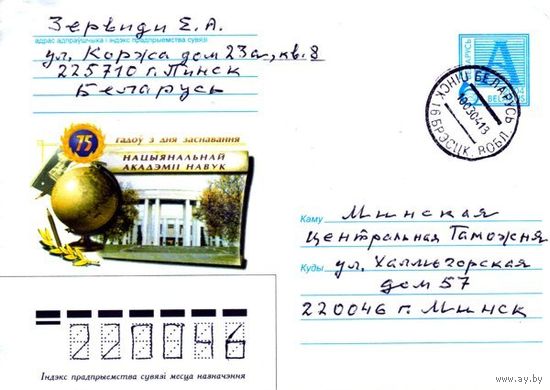 Зервиди Е. А.
адрас адпраўшчыка і індэкс прадпрыемства сувязі
ул. Коржа дом 23а, кв. 8
225710 г. Пинск
Беларусь
БЕЛАРУСЬ
А
ПІНСК 16 БРЭСЦК. ВОБЛ. БЕЛАРУСЬ
75
гадоў з дня заснавання
НАЦЫЯНАЛЬНАЙ
АКАДЭМІІ НАВУК
Каму Минская
центральная Таможня
Куды ул. Халмгорская
дом 57
220046 г. Минск
220046
Індэкс прадпрыемства сувязі месца назначэння
www.ay.by